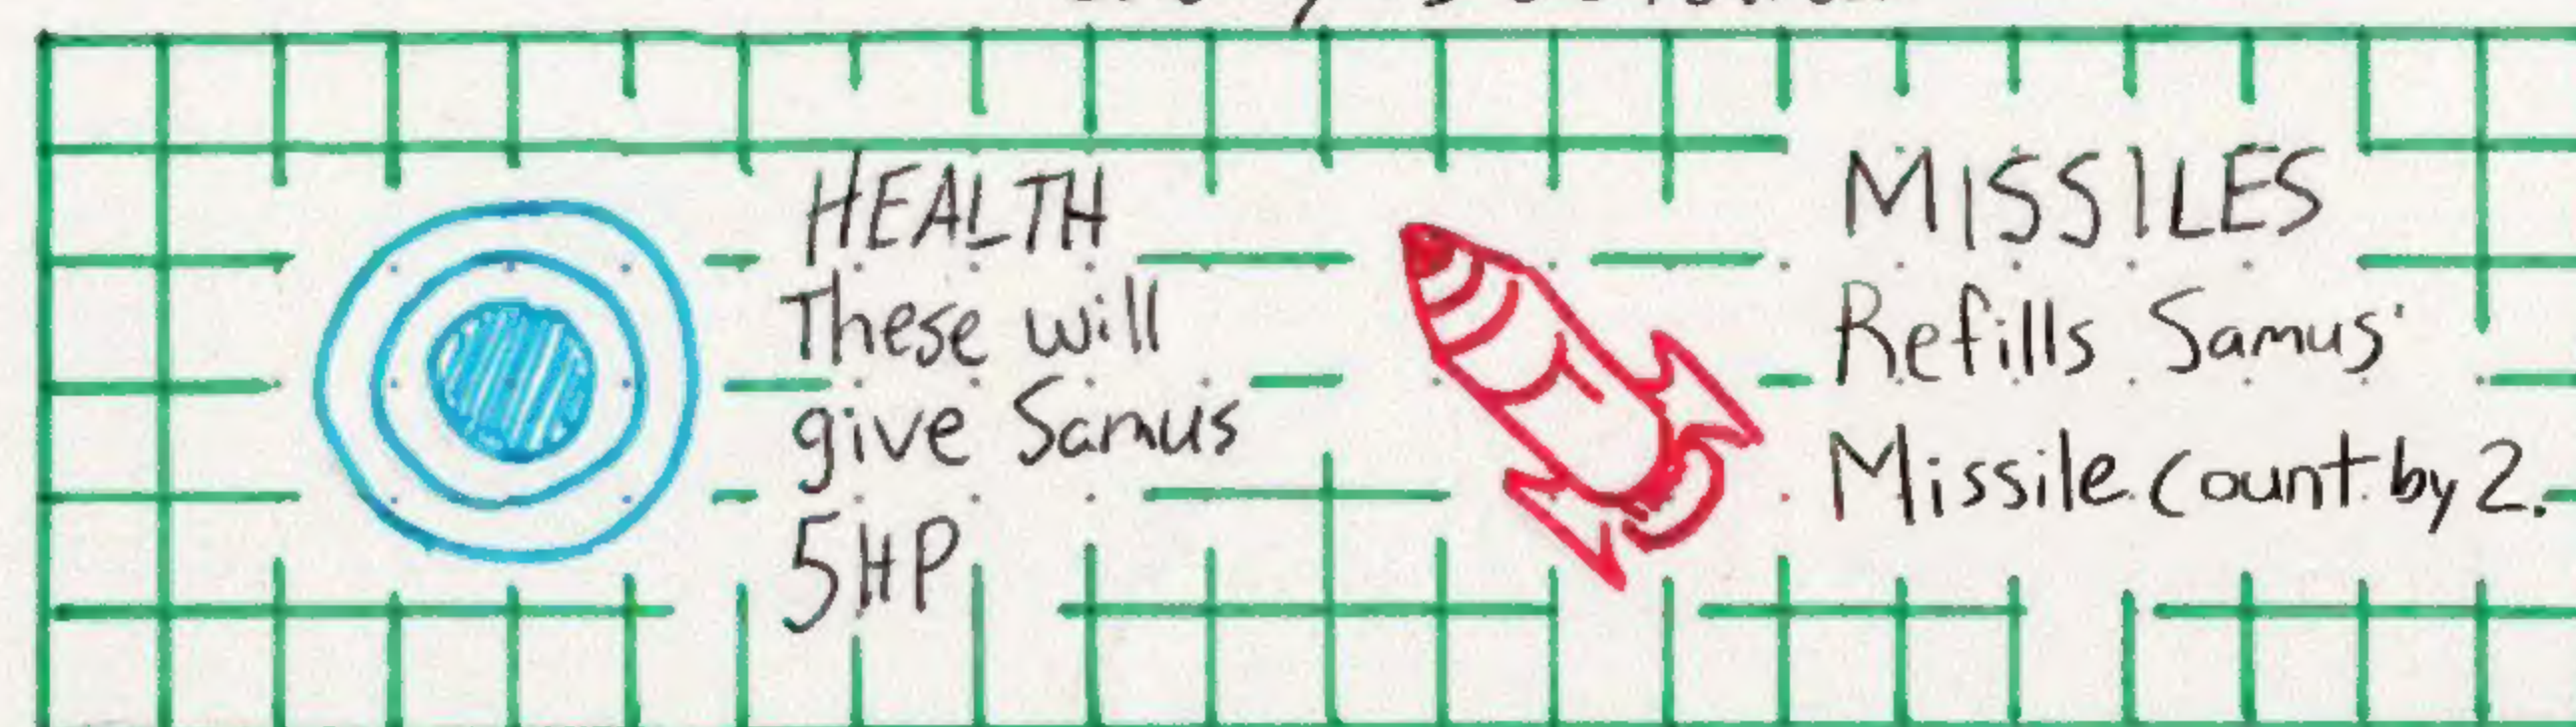 HEALTH
These will
give Samus
5HP
MISSILES
Refills Samus'
Missile Count by 2.